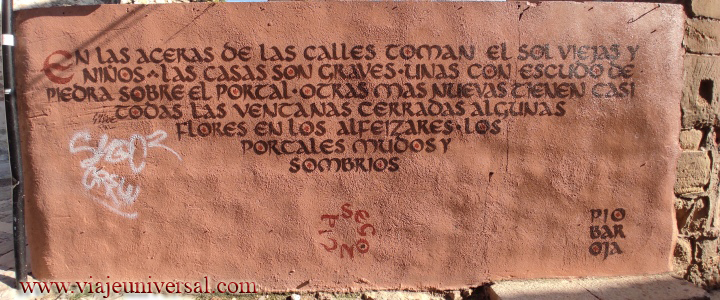 EN LAS ACERAS DE LAS CALLES TOMAN EL SOL VIEJAS Y
NIÑOS · LAS CASAS SON GRAVES · UNAS CON ESCUDO DE
PIEDRA SOBRE EL PORTAL · OTRAS MAS NUEVAS TIENEN CASI
TODAS LAS VENTANAS CERRADAS ALGUNAS
FLORES EN LOS ALFEIZARES · LOS
PORTALES MUDOS Y
SOMBRIOS
PIO
BAR
OJA
CREW
www.viajeuniversal.com